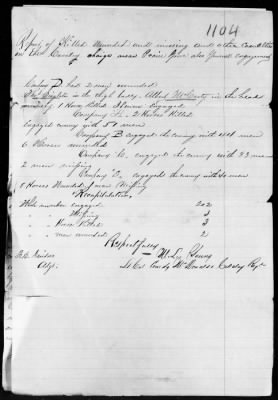 1104
Report of Killed Wounded and missing and other Casualties
in the Cavalry charge near Prairie Grove also general engagement
Company D had 2 men wounded
in the thigh badly Albert McCarty in the head
1 Horse Killed engaged
Company 2 Horses Killed
engaged enemy with 50 men
Company B engaged the enemy with 41 men
6 Horses wounded
Company C. engaged the enemy with 33 men
2 men missing
Company engaged the enemy with men
Horses Wounded 1 man Missing
Recapitulation
Whole number engaged 202
" " Missing 3
" Horses Killed 3
" " men wounded 2
Respectfully
M. Lee Young
Lt Col Comdg Cavalry Regt
Adjt.